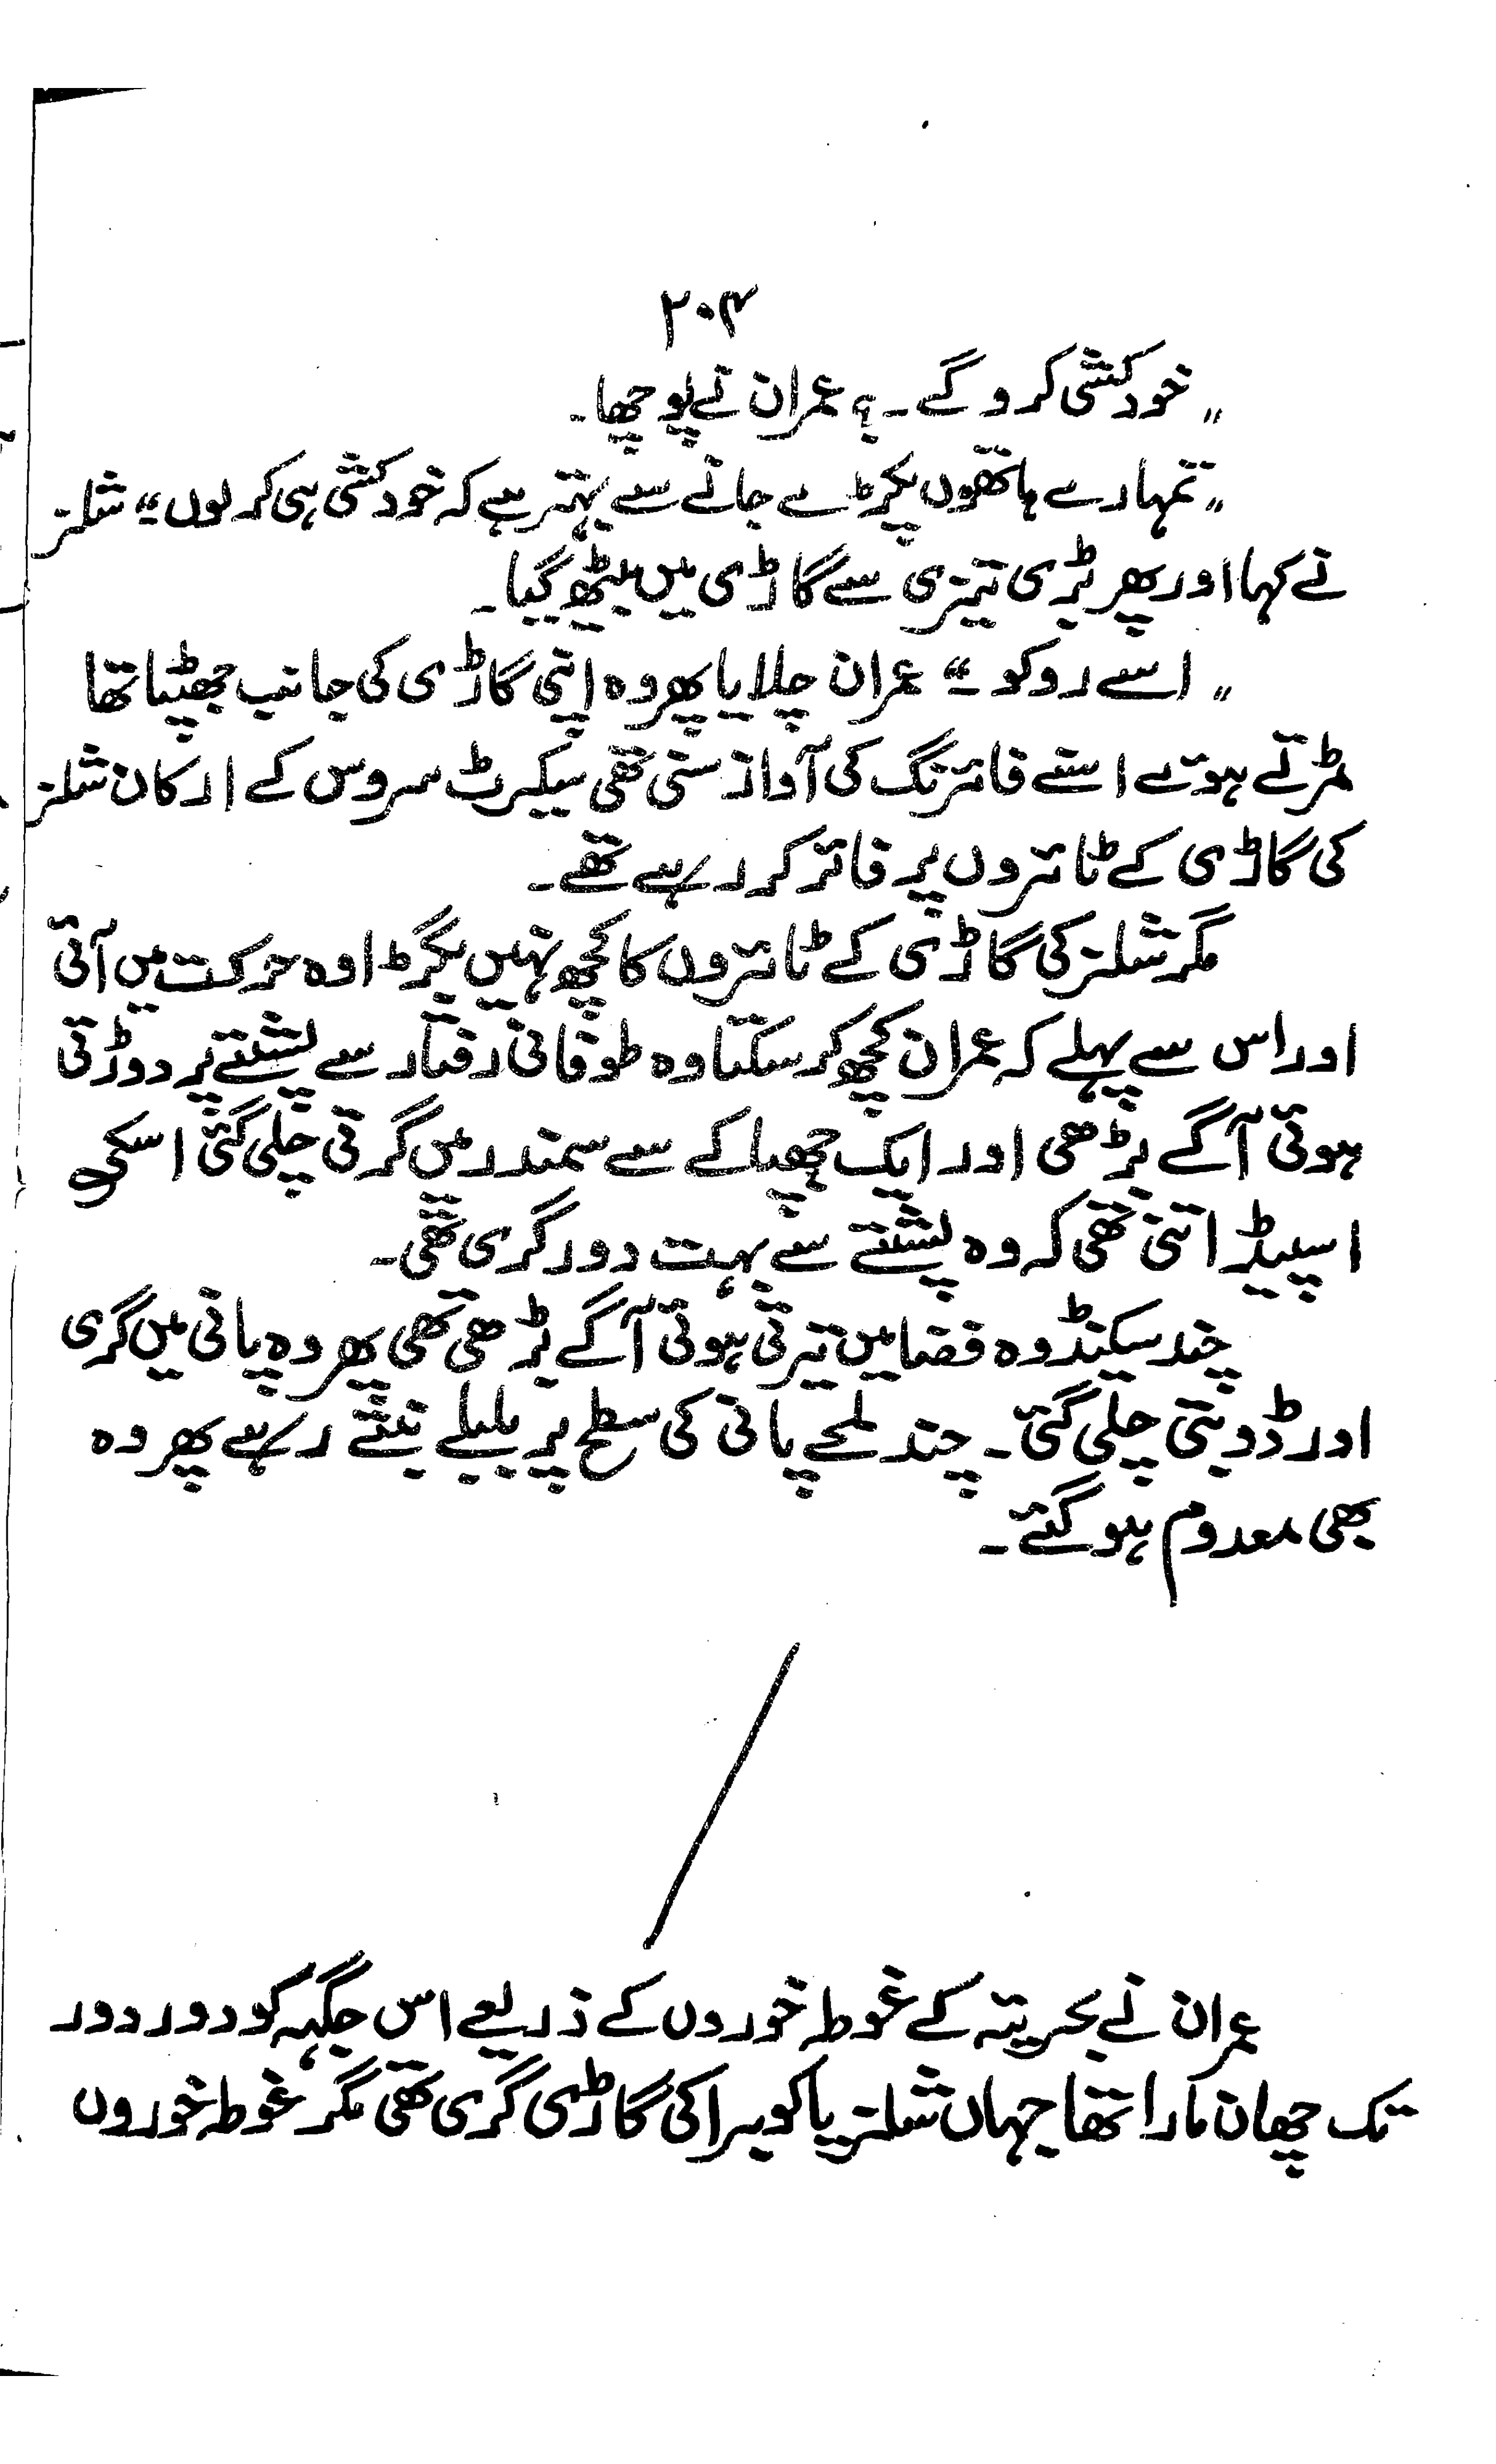 ۲۰۴
„ خودکشی کرو گے ۔؟ عمران نے پوچھا۔
„ تمہارے ہاتھوں پکڑے جانے سے بہتر ہے کہ خودکشی ہی کر لوں “ شلز
نے کہا اور پھر بڑی تیزی سے گاڑی میں بیٹھ گیا۔
„ اسے روکو ۔“ عمران چلایا پھر وہ اپنی گاڑی کی جانب جھپٹا تھا
مڑتے ہوئے اسنے فائرنگ کی آواز سنی تھی سیکرٹ سروس کے ارکان شلز
کی گاڑی کے ٹائروں پر فائر کر رہے تھے۔
مگر شلز کی گاڑی کے ٹائروں کا کچھ نہیں بگڑا وہ حرکت میں آئی
اور اس سے پہلے کہ عمران کچھ کر سکتا وہ طوفانی رفتار سے پشتے پر دوڑتی
ہوئی آگے بڑھی اور ایک چھپاکے سے سمندر میں گرتی چلی گئی اسکی
اسپیڈ اتنی تھی کہ وہ پشتے سے بہت دور گری تھی۔
چند سیکنڈ وہ فضا میں تیرتی ہوئی آگے بڑھی تھی پھر وہ پانی میں گری
اور ڈوبتی چلی گئی۔ چند لمحے پانی کی سطح پر بلبلے بنتے رہے پھر وہ
بھی معدوم ہو گئے ۔
عمران نے بحریہ کے غوطہ خوروں کے ذریعے اس جگہ کو دور دور
تک چھان مارا تھا جہاں شلز یا کوبرا کی گاڑی گری تھی مگر غوطہ خوروں